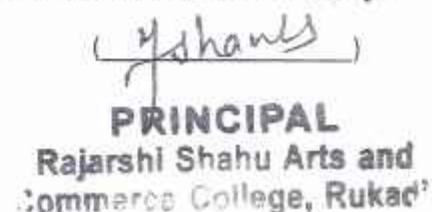 PRINCIPAL
Rajarshi Shahu Arts and
Commerce College, Rukad